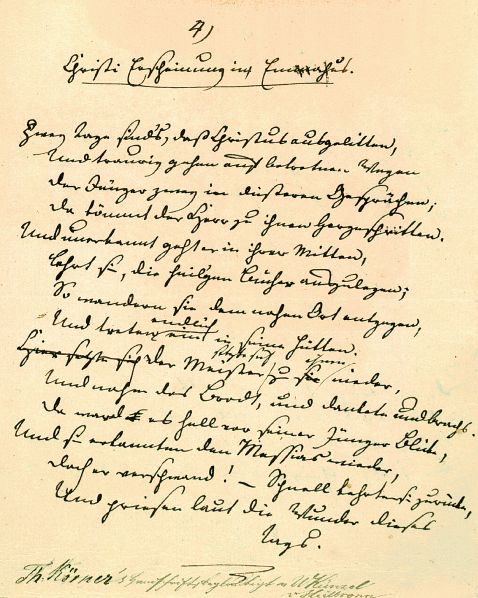 4)
Christi Erscheinung in Emmahus.
Zwey Tage sind's, daß Christus ausgelitten,
Und traurig gehen auf betretnen Wegen
Der Jünger zwey in düsteren Gesprächen;
Da kömmt der Herr zu ihnen hergeschritten.
Und unerkannt geht er in ihrer Mitten,
Lehrt sie, die heilgen Bücher auszulegen;
So wandern sie dem nahen Ort entgegen,
endlich
Und treten ein in seine Hütten.
setzte sich ihnen
Hier setzte sich der Meister zu sie nieder,
Und nahm das Brodt, und dankte und brach's.
Da ward es hell vor seiner Jünger Blick,
Und sie erkannten den Messias wieder,
Doch er verschwand! – Schnell kehrten sie zurück,
Und priesen laut die Wunder dieses
Tags.
Th. Körner's Handschrift beglaubigt W. Künzel
Heilbronn